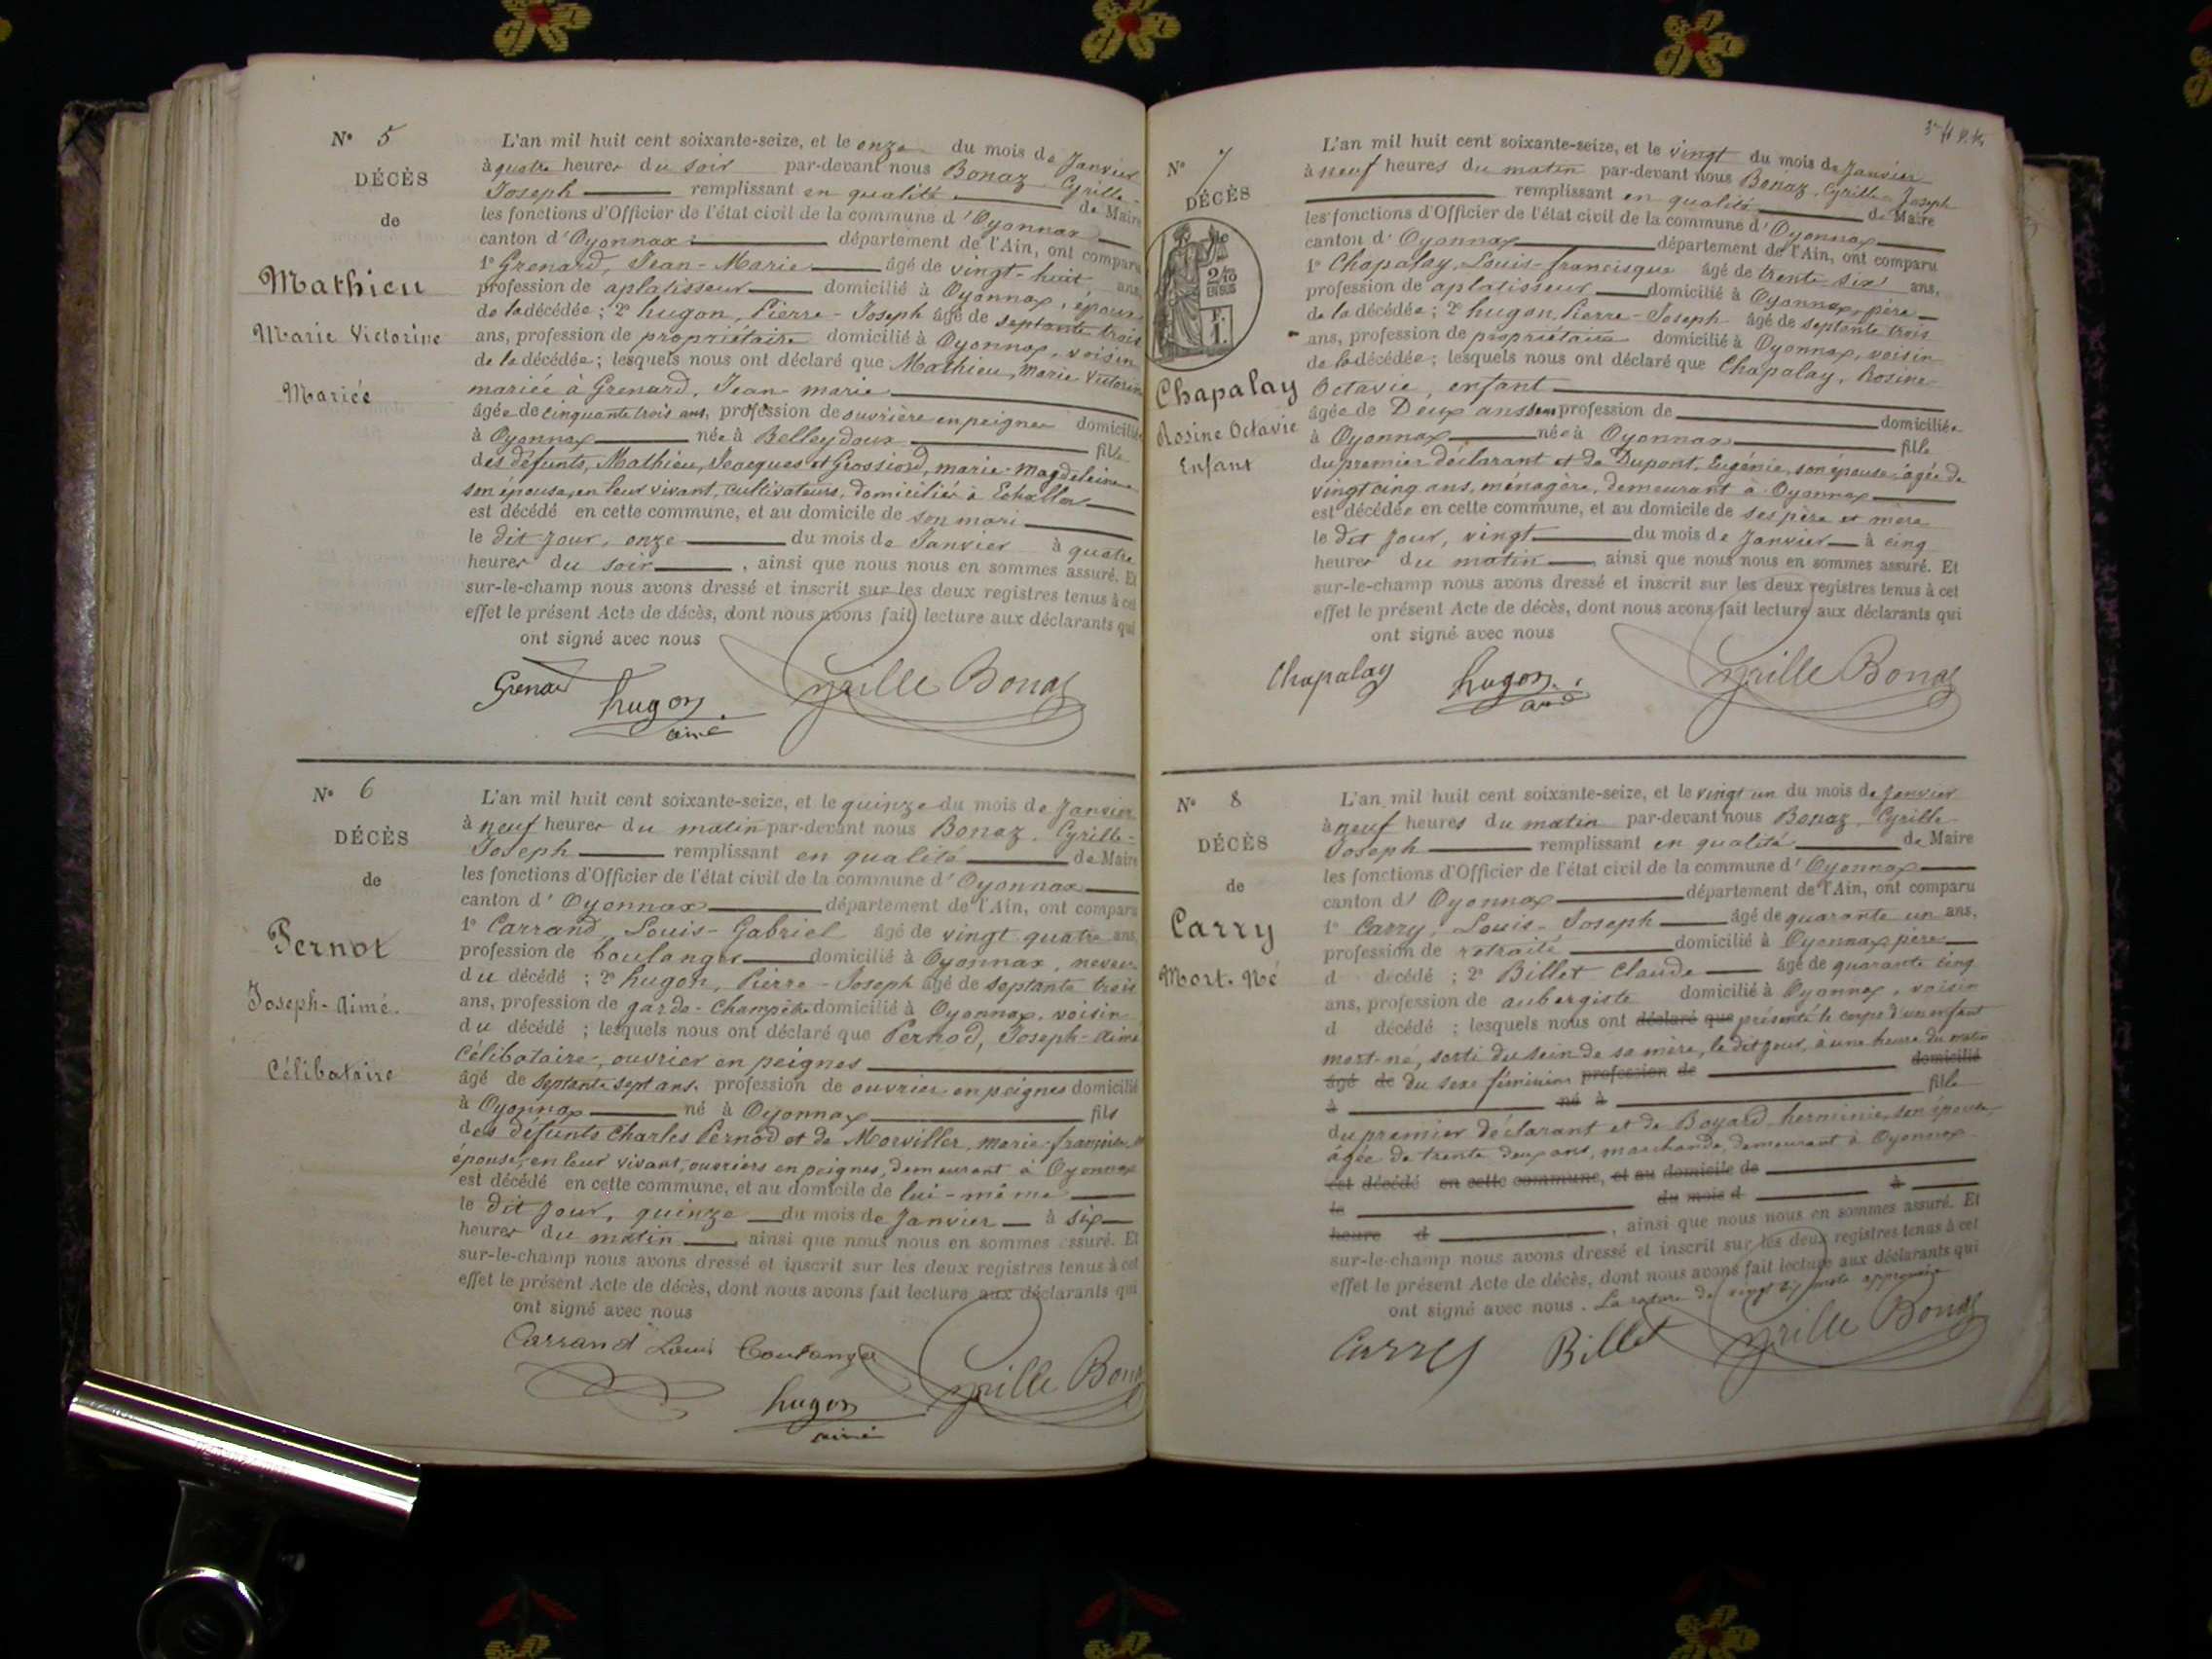 N° 5
DÉCÈS
de
Mathieu
Marie Victorine
Mariée
L'an mil huit cent soixante-seize, et le onze du mois de Janvier
à quatre heures du soir par-devant nous Bonaz Cyrille-
Joseph remplissant en qualité de Maire
les fonctions d'Officier de l'état civil de la commune d'Oyonnax
canton d'Oyonnax département de l'Ain, ont comparu
1° Grenard, Jean-Marie âgé de vingt-huit ans,
profession de aplatisseur domicilié à Oyonnax, époux
de la décédée ; 2° hugon, Pierre-Joseph âgé de septante trois
ans, profession de propriétaire domicilié à Oyonnax, voisin
de la décédée ; lesquels nous ont déclaré que Mathieu, Marie Victorine
mariée à Grenard, Jean-marie
âgée de cinquante trois ans, profession de ouvrière en peignes domiciliée
à Oyonnax née à Belleydoux fille
des défunts, Mathieu, Jacques et Grossiord, marie-Magdeleine
son épouse, en leur vivant, cultivateurs, domiciliés à Echallon
est décédé en cette commune, et au domicile de son mari
le dit jour, onze du mois de Janvier à quatre
heures du soir, ainsi que nous nous en sommes assuré. Et
sur-le-champ nous avons dressé et inscrit sur les deux registres tenus à cet
effet le présent Acte de décès, dont nous avons fait lecture aux déclarants qui
ont signé avec nous
Grenard hugon aîné Cyrille Bonaz
N° 6
DÉCÈS
de
Pernot
Joseph-Aimé.
Célibataire
L'an mil huit cent soixante-seize, et le quinze du mois de Janvier
à neuf heures du matin par-devant nous Bonaz Cyrille-
Joseph remplissant en qualité de Maire
les fonctions d'Officier de l'état civil de la commune d'Oyonnax
canton d'Oyonnax département de l'Ain, ont comparu
1° Carrand, Louis-Gabriel âgé de vingt quatre ans,
profession de boulanger domicilié à Oyonnax, neveu
du décédé ; 2° hugon, Pierre-Joseph âgé de septante trois
ans, profession de garde-champêtre domicilié à Oyonnax, voisin
du décédé ; lesquels nous ont déclaré que Pernod, Joseph-Aimé
Célibataire, ouvrier en peignes
âgé de septante sept ans, profession de ouvrier en peignes domicilié
à Oyonnax né à Oyonnax fils
des défunts Charles Pernod et de Morviller, marie-françoise
épouse, en leur vivant, ouvriers en peignes, demeurant à Oyonnax
est décédé en cette commune, et au domicile de lui-même
le dit jour, quinze du mois de Janvier à six
heures du matin, ainsi que nous nous en sommes assuré. Et
sur-le-champ nous avons dressé et inscrit sur les deux registres tenus à cet
effet le présent Acte de décès, dont nous avons fait lecture aux déclarants qui
ont signé avec nous
Carrand Louis Boulanger
hugon aîné Cyrille Bonaz
N° 7
DÉCÈS
2/10
EN SUS
F.
1.
Chapalay
Rosine Octavie
Enfant
L'an mil huit cent soixante-seize, et le vingt du mois de Janvier
à neuf heures du matin par-devant nous Bonaz, Cyrille-Joseph
remplissant en qualité de Maire
les fonctions d'Officier de l'état civil de la commune d'Oyonnax
canton d'Oyonnax département de l'Ain, ont comparu
1° Chapalay, Louis-francisque âgé de trente six ans,
profession de aplatisseur domicilié à Oyonnax, père
de la décédée ; 2° hugon, Pierre-Joseph âgé de septante trois
ans, profession de propriétaire domicilié à Oyonnax, voisin
de la décédée ; lesquels nous ont déclaré que Chapalay, Rosine
Octavie, enfant
âgée de Deux ans sans profession de domiciliée
à Oyonnax née à Oyonnax fille
du premier déclarant et de Dupont, Eugénie, son épouse, âgée de
vingt cinq ans, ménagère, demeurant à Oyonnax
est décédée en cette commune, et au domicile de ses père et mère
le dit jour, vingt du mois de Janvier à cinq
heures du matin, ainsi que nous nous en sommes assuré. Et
sur-le-champ nous avons dressé et inscrit sur les deux registres tenus à cet
effet le présent Acte de décès, dont nous avons fait lecture aux déclarants qui
ont signé avec nous
Chapalay hugon Cyrille Bonaz
N° 8
DÉCÈS
de
Carry
Mort-Né
L'an mil huit cent soixante-seize, et le vingt un du mois de Janvier
à neuf heures du matin par-devant nous Bonaz, Cyrille
Joseph remplissant en qualité de Maire
les fonctions d'Officier de l'état civil de la commune d'Oyonnax
canton d'Oyonnax département de l'Ain, ont comparu
1° Carry, Louis-Joseph âgé de quarante un ans,
profession de retraité domicilié à Oyonnax père
d décédé ; 2° Billet Claude âgé de quarante cinq
ans, profession de aubergiste domicilié à Oyonnax, voisin
d décédé ; lesquels nous ont déclaré que présenté le corps d'un enfant
mort-né, sorti du sein de sa mère, le dit jour, à une heure du matin
âgé de du sexe féminin profession de domicilié
à né à fille
du premier déclarant et de Boyard, herminie, son épouse,
âgée de trente deux ans, marchande, demeurant à Oyonnax
est décédé en cette commune, et au domicile de
le du mois d à
heure d, ainsi que nous nous en sommes assuré. Et
sur-le-champ nous avons dressé et inscrit sur les deux registres tenus à cet
effet le présent Acte de décès, dont nous avons fait lecture aux déclarants qui
ont signé avec nous. La rature de vingt six mots approuvée
Carry Billet Cyrille Bonaz